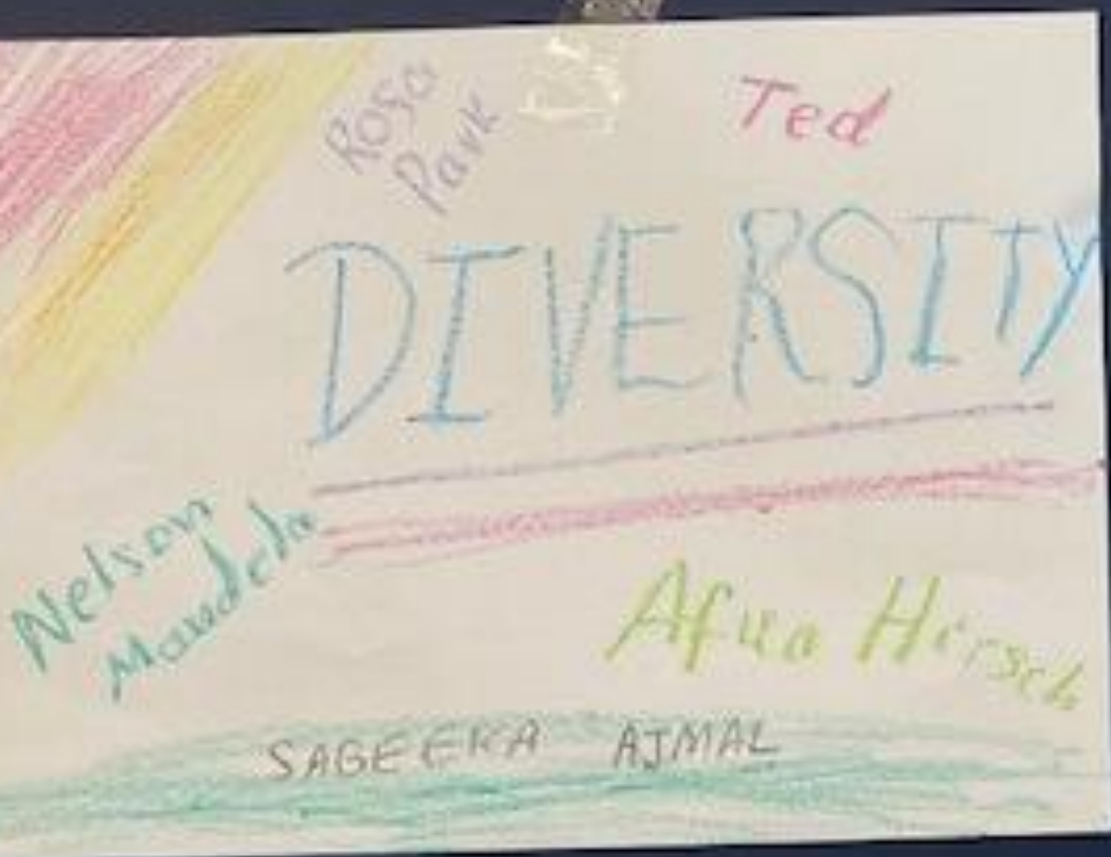 Rosa
Park
Ted
DIVERSITY
Nelson
Mandela
Afua Hirsch
SAGEERA AJMAL